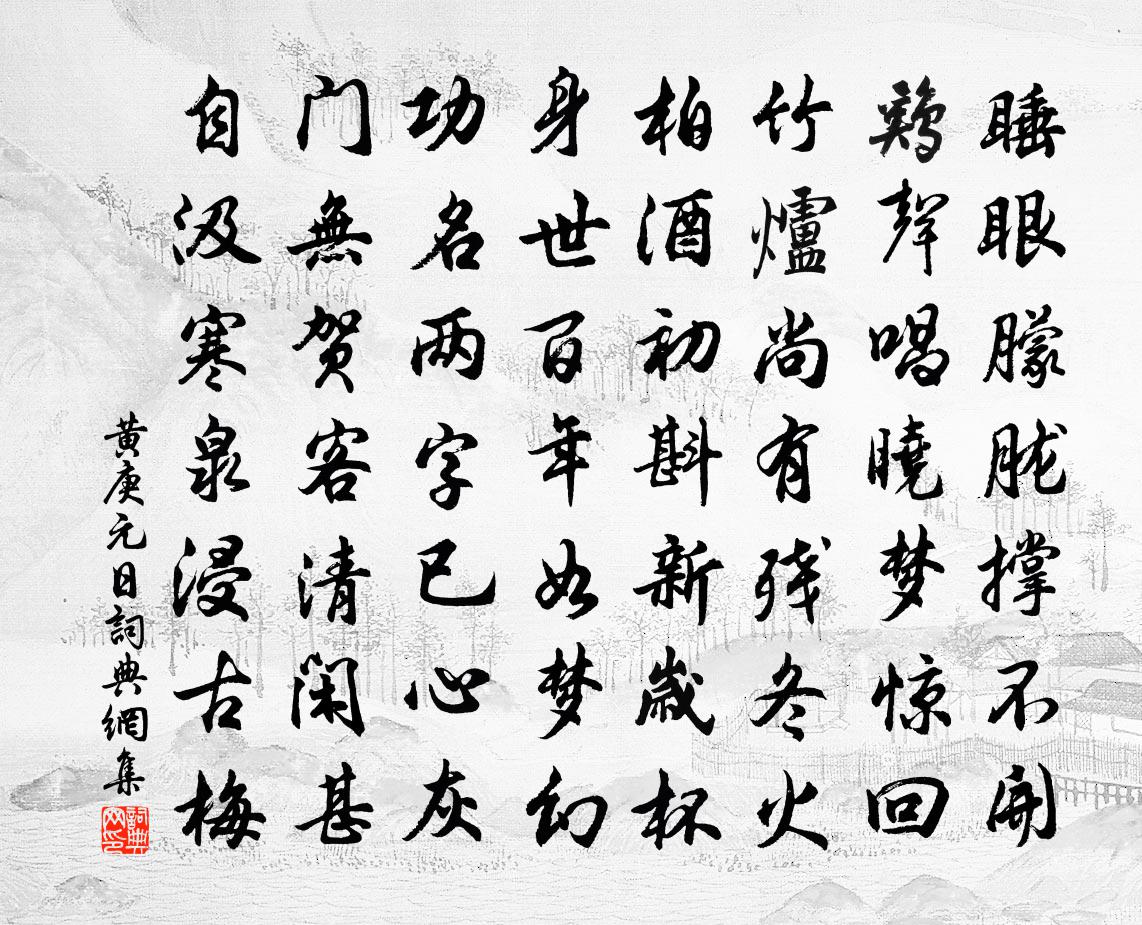 睡眼朦胧撑不开
鷄聲唱曉梦惊回
竹爐尚有残冬火
柏酒初斟新歲杯
身世百年如梦幻
功名两字已心灰
门無贺客清闲甚
自汲寒泉浸古梅
黄庚元日詞典網集
詞典网印